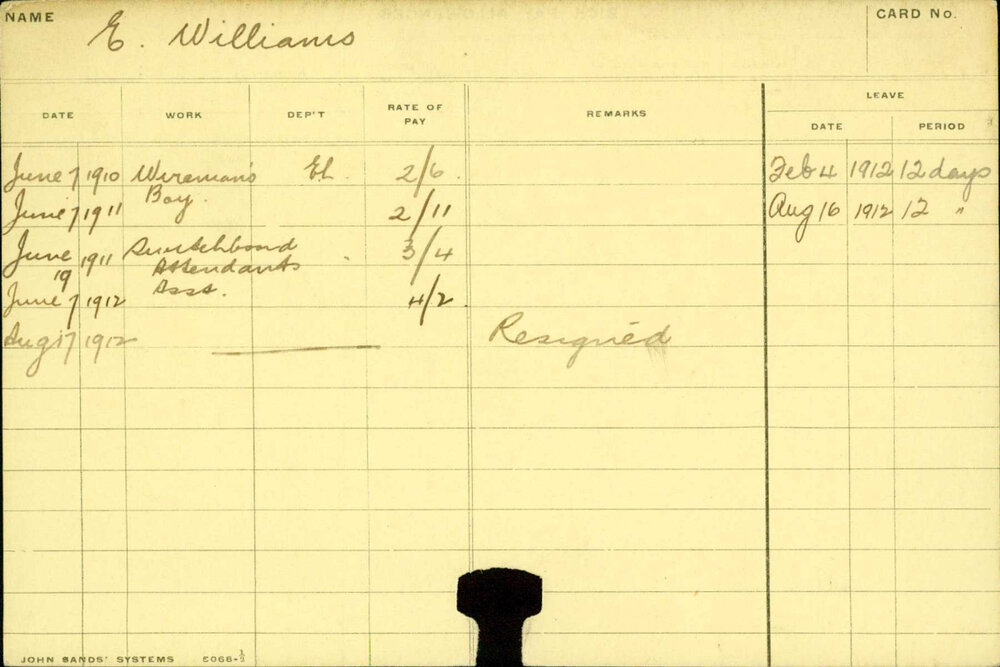 NAME E. Williams CARD No.
LEAVE
DATE WORK DEP'T RATE OF PAY REMARKS DATE PERIOD
June 7 1910 Wireman's El. 2/6 Feb 4 1912 12 days
June 7 1911 Boy. 2/11 Aug 16 1912 12 "
June 19 1911 Switchboard 3/4
Attendants
June 7 1912 Asst. 4/2
Aug 17 1912 Resigned
JOHN SANDS' SYSTEMS 5068-½